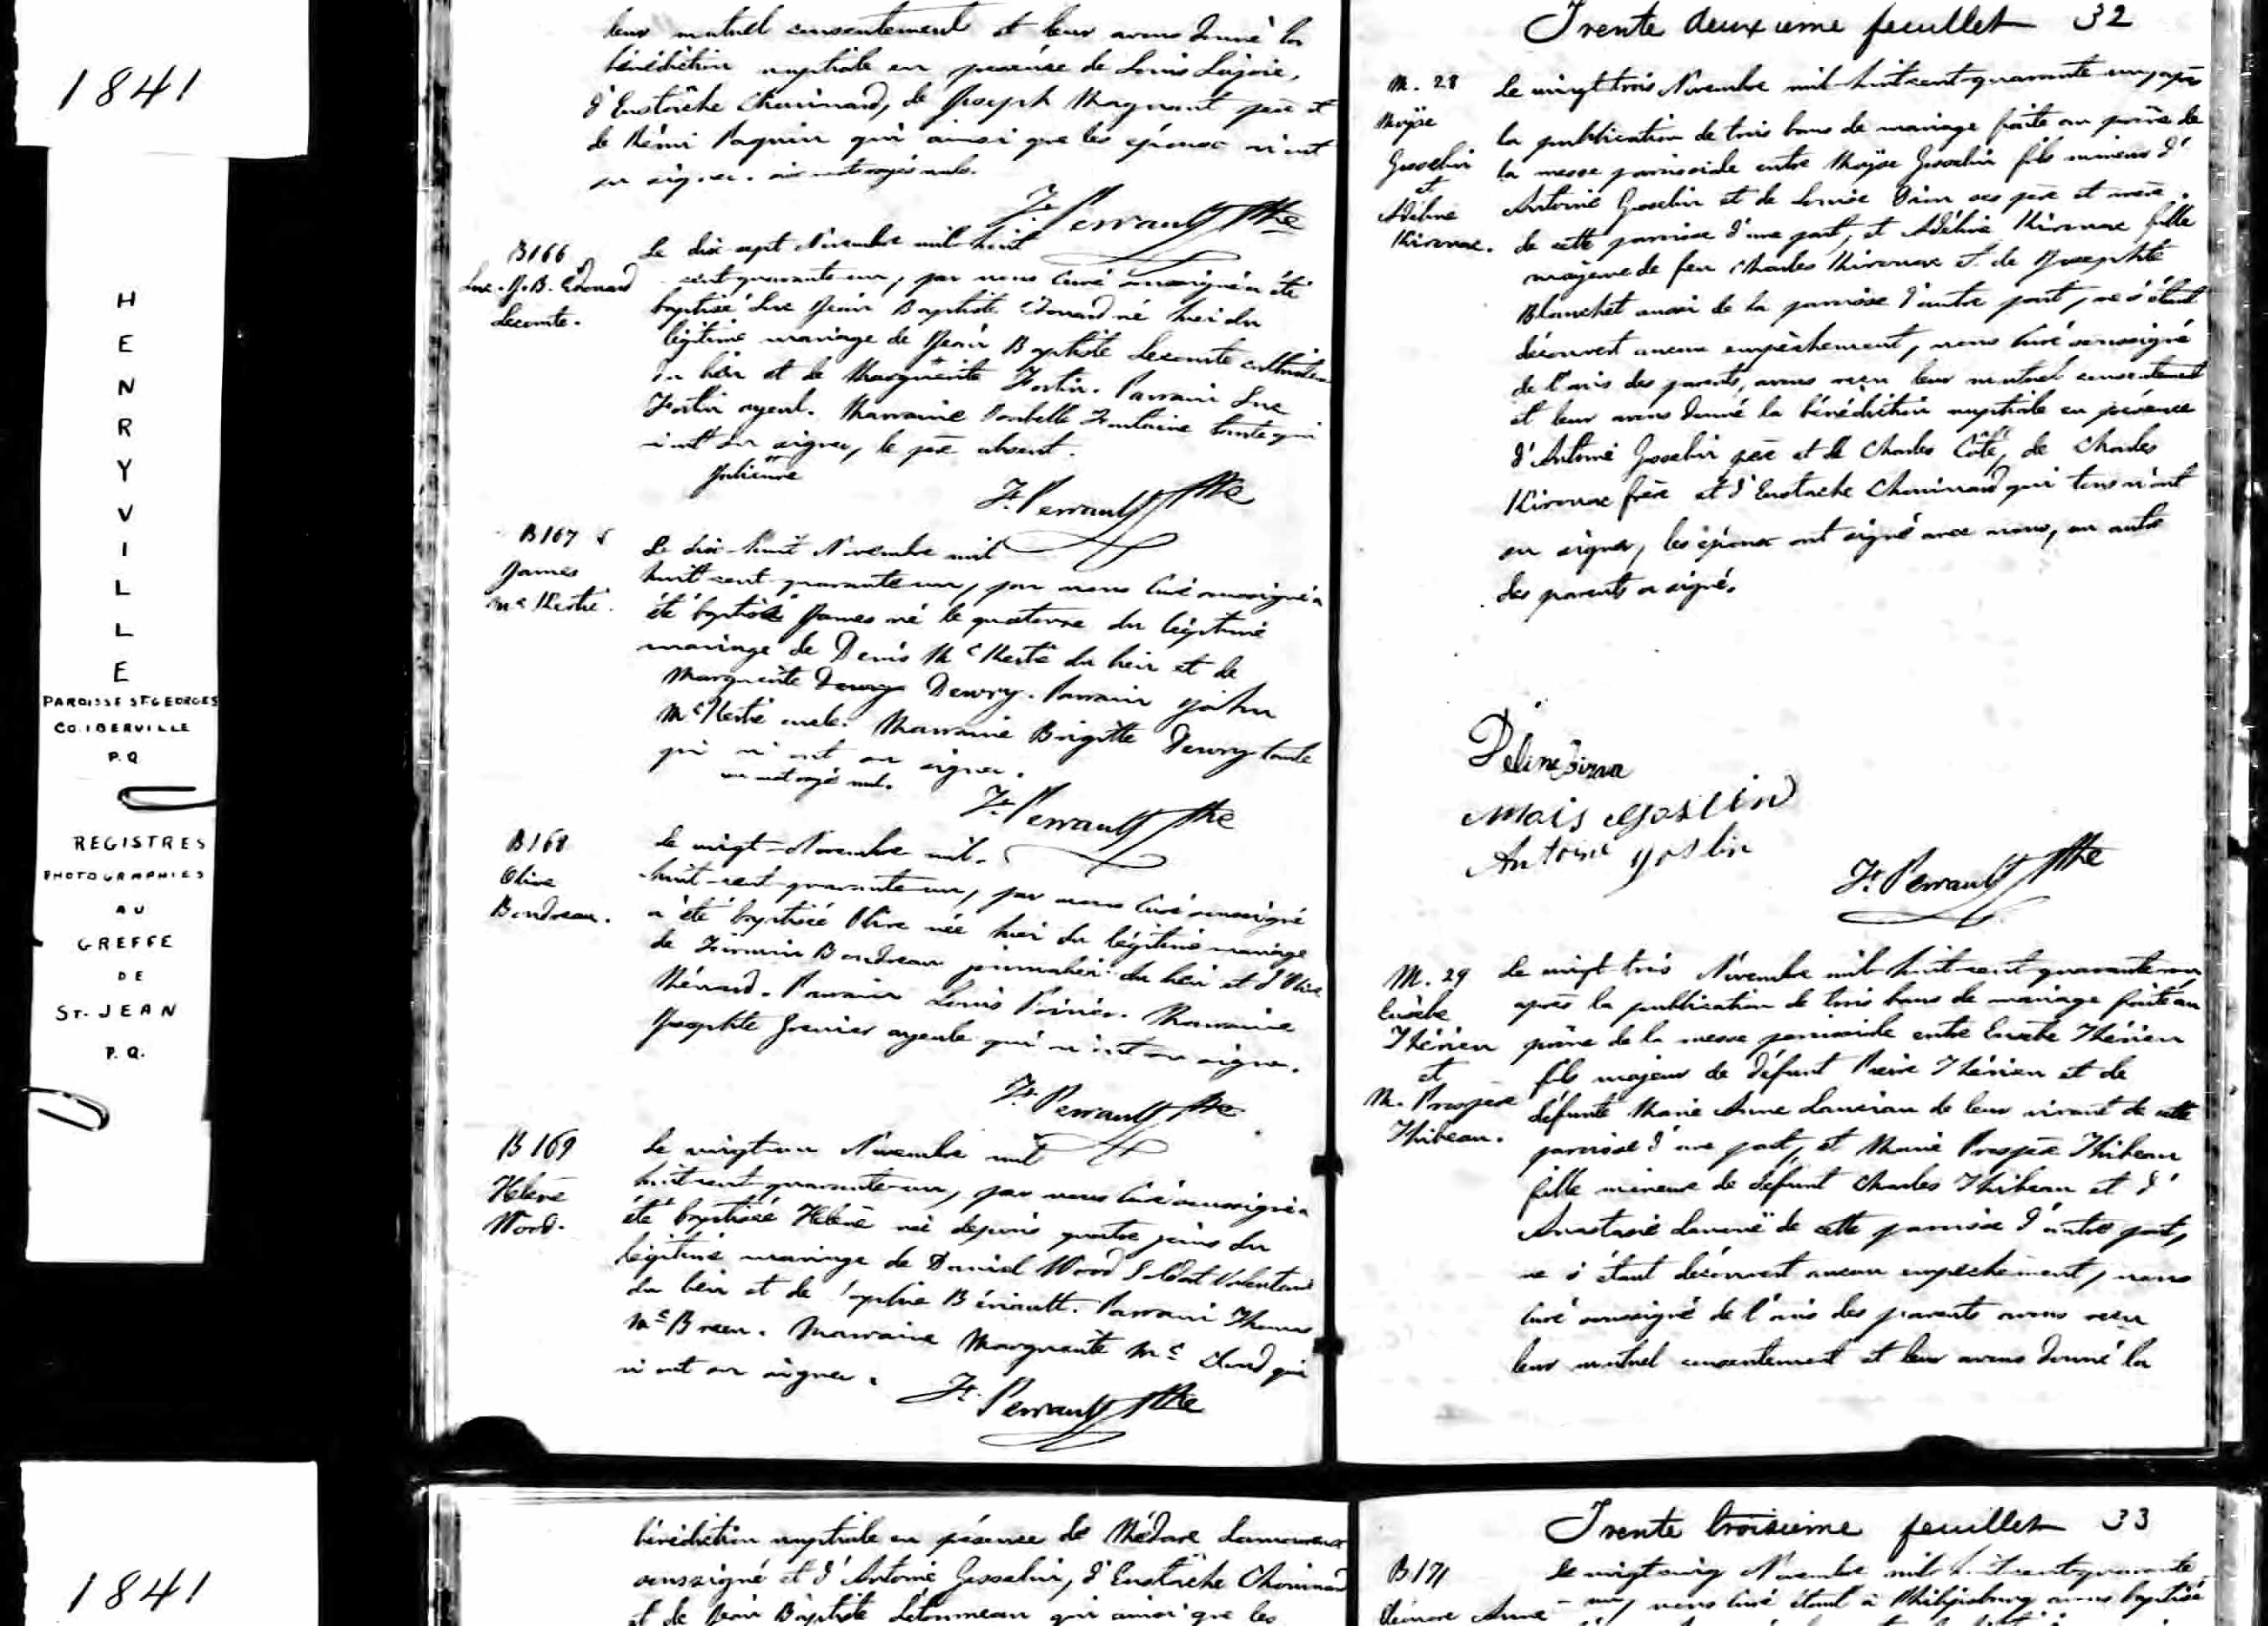 1841
HENRYVILLE
PAROISSE ST. GEORGES
CO. IBERVILLE
P.Q
REGISTRES
PHOTOGRAPHIES
AU
GREFFE
DE
ST. JEAN
P.Q.
1841
leur mutuel consentement et leur avons donné la
bénédiction nuptiale en présence de Louis Lajoie,
d'Eustache Chouinard, de Joseph Magnant père et
de Rémi Paquin qui ainsi que les épouse n'ont
su signer. six mots rayés nuls.
Ft. Perrault Ptre
B166
Luc. J.B. Edouard
Lecomte.
Le dix sept Novembre mil huit
cent quarante un, par nous Curé soussigné a été
baptisé Luc Jean Baptiste Edouard né hier du
légitime mariage de Jean Baptiste Lecomte cultivateur
du lieu et de Marguerite + Fortin. Parrain Luc
Fortin ayeul. Marraine Fontaine tante qui
n'ont su signer, le père absent.
+ Julienne
Ft. Perrault Ptre
B167
James
Mc Kertie.
Le dix-huit Novembre mil
huit cent quarante un, par nous Curé soussigné a
été baptisé James né le quatorze du légitime
mariage de Denis Mc Kertie du lieu et de
Marguerite Dewry. Parrain John
Mc Kertie oncle. Marraine Brigitte Dewry tante
qui n'ont su signer.
un mot rayé nul.
Ft. Perrault Ptre
B168
Olive
Boudreau.
Le vingt Novembre mil
huit-cent quarante un, par nous Curé soussigné
a été baptisée Olive née hier du légitime mariage
de Firmin Boudreau journalier du lieu et d'Olive
Ménard. Parrain Louis Poirier. Marraine
Josephte Grenier ayeule qui n'ont su signer.
Ft. Perrault Ptre
B169
Helène
Wood.
Le vingt un Novembre mil
huit cent quarante un, par nous Curé soussigné a
été baptisée Helène née depuis quatre jours du
légitime mariage de Daniel Wood Soldat Volontaire
du lieu et de Sophie Bériault. Parrain Thomas
Mc Breen. Marraine Marguerite Mc Cloud qui
n'ont su signer.
Ft. Perrault Ptre
Trente deuxieme feuillet 32
M. 28
Moÿse
Gosselin
et
Adéline
Kirouac.
Le vingt trois Novembre mil-huit cent-quarante-un, après
la publication de trois bans de mariage faite au prône de
la messe paroissiale entre Moÿse Gosselin fils mineur d'
Antoine Gosselin et de Louise ses père et mère
de cette paroisse d'une part, et Adéline Kirouac fille
majeure de feu Charles Kirouac et de Josephte
Blanchet aussi de la paroisse d'autre part, ne s'étant
découvert aucun empêchement, nous Curé soussigné
de l'avis des parents, avons reçu leur mutuel consentement
et leur avons donné la bénédiction nuptiale en présence
d'Antoine Gosselin père et de Charles Côté, de Charles
Kirouac frère et d'Eustache Chouinard qui tous n'ont
su signer, les époux ont signé avec nous, un autre
des parents a signé.
Deline
Mois Goslin
Antoine Goslin
Ft. Perrault Ptre
M. 29
Eusèbe
Thérien
et
M. Prospère
Thibeau.
Le vingt trois Novembre mil huit-cent-quarante-un
après la publication de trois bans de mariage faite au
prône de la messe paroissiale entre Eusèbe Thérien
fils majeur de défunt Pierre Thérien et de
défunte Marie Anne de leur vivant de cette
paroisse d'une part, et Marie Prospère Thibeau
fille mineure de défunt Charles Thibeau et d'
Anastasie de cette paroisse d'autre part,
ne s'étant découvert aucun empêchement, nous
Curé soussigné de l'avis des parents avons reçu
leur mutuel consentement et leur avons donné la
bénédiction nuptiale en présence de Médare Lamoureux
soussigné et d'Antoine Gosselin, d'Eustache Chouinard
et de Jean Baptiste Létourneau qui ainsi que les
Trente troisieme feuillet 33
B171
Anne
Le vingt cinq Novembre mil huit cent quarante
un, nous Curé étant à Philipsburg avons baptisé